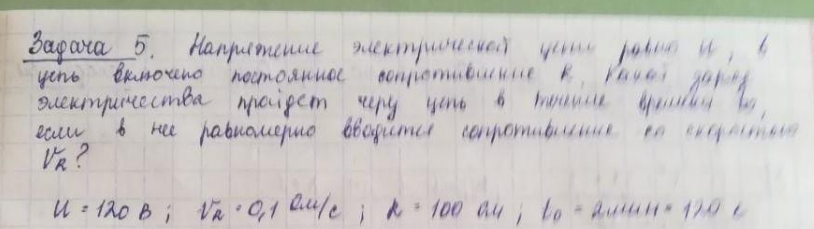 Задача 5. Напряжение электрической цепи равно U, в
цепь включено постоянное сопротивление R. Какой заряд
электричества пройдет через цепь в течение времени t₀,
если в нее равномерно вводится сопротивление со скоростью
V_R?
U = 120 В; V_R = 0,1 Ом/с; R = 100 Ом; t₀ = 2 мин = 120 с